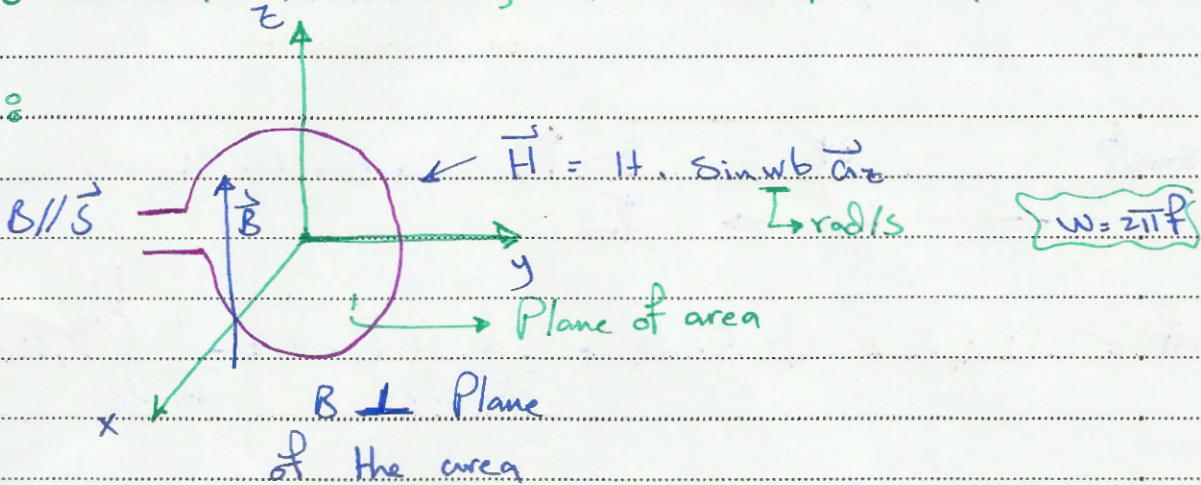 z
H = H. Sin wb az
B//S
B
rad/s
w = 2πf
y
Plane of area
B ⊥ Plane
x
of the area